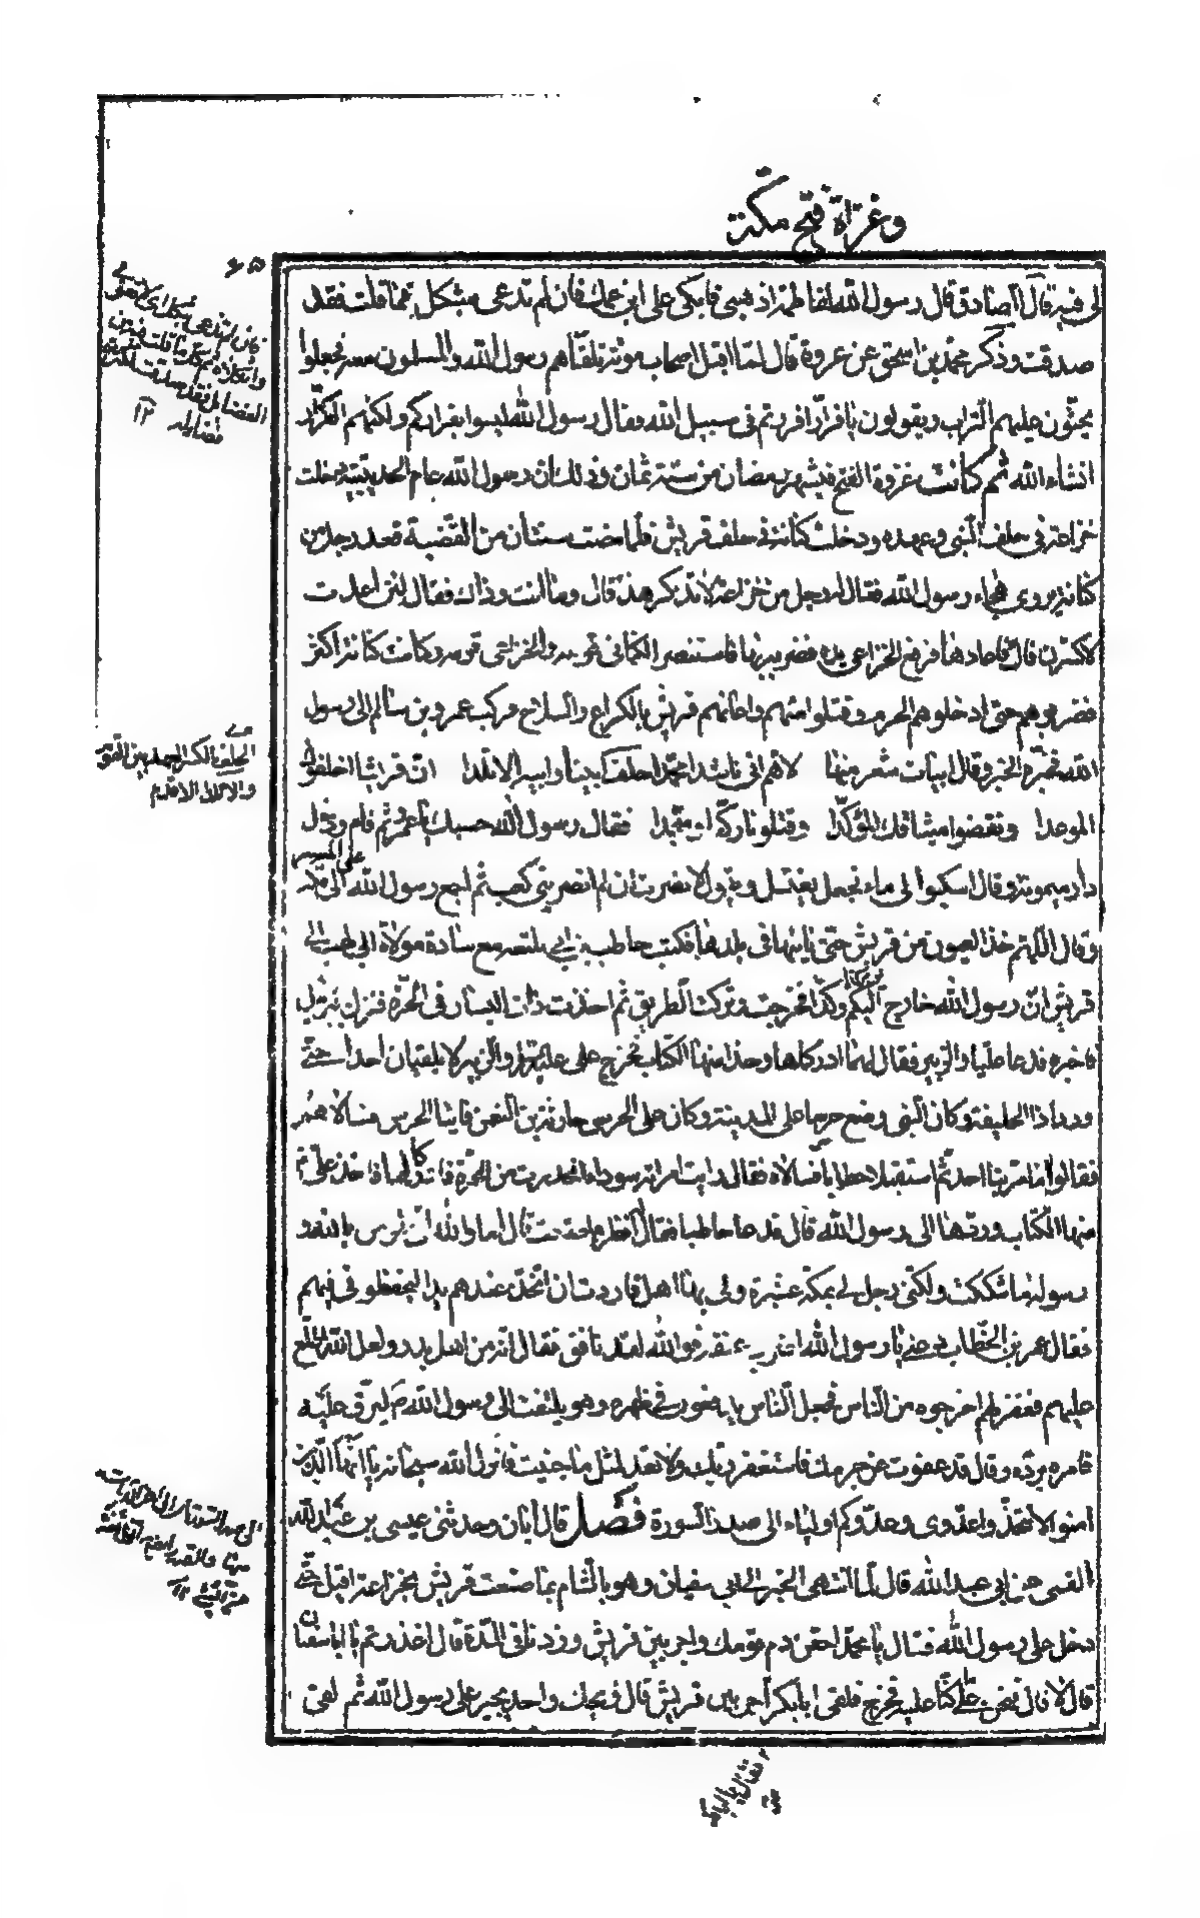 وغزاة فتح مكة
۶۵
لى فيه قال الصادق قال رسول الله لفاطمة اذهبى فابكى على ابن عمك فان لم تدعى بثكل فما قلت فقد
صدقت وذكر محمد بن اسحق عن عروة قال لما اقبل اصحاب موتة تلقاهم رسول الله والمسلون معه فجعلوا
يحثون عليهم التراب ويقولون يا فرار افررتم فى سبيل الله فقال رسول الله ليسوا بفرار ولكنهم الكرار
انشاء الله ثم كانت غزوة الفتح فى شهر رمضان من سنة ثمان وذلك ان رسول الله عام الحديبية دخلت
خزاعة فى حلف النبى وعهده ودخلت كنانة فى حلف قريش فلما مضت سنتان من القضية قعد رجل من
كنانة يروى هجاء رسول الله فقال له رجل من خزاعة لا تذكر هذا قال وما انت وذاك فقال لئن اعدت
لاكسرن فاك فاعادها فرفع الخزاعى يده فضربه بها فاستنصر الكنانى قومه والخزاعى قومه وكانت كنانة اكثر
فضربوهم حتى ادخلوهم الحرم وقتلوا منهم واعانهم قريش بالكراع والسلاح فركب عمرو بن سالم الى رسول
الله فخبره الخبر وقال ابيات شعر منها لاهم انى ناشد محمدا حلف ابينا وابيه الاتلدا ان قريشا اخلفوك
الموعدا ونقضوا ميثاقك المؤكدا وقتلونا ركعا وسجدا فقال رسول الله حسبك يا عمرو ثم قام ودخل
دار ميمونة وقال اسكبوا لى ماء فجعل يغتسل ويقول لا نصرت ان لم انصر بنى كعب ثم اجمع رسول الله على المسير الى مكة
وقال اللهم خذ العيون من قريش حتى ناتيها فى بلدها فكتب حاطب بن ابى بلتعة مع سارة مولاة ابى لهب الى
قريش ان رسول الله خارج اليكم يوم كذا وكذا فخرجت وتركت الطريق ثم اخذت ذات اليسار فى الحرة فنزل جبرئيل
فاخبره فدعا عليا والزبير فقال لهما ادركاها وخذا منها الكتاب فخرج على والزبير لا يلقيان احدا حتى
وردا ذا الحليفة وكان النبى وضع حرسا على المدينة وكان على الحرس حارثة بن النعمن فاتيا الحرس فسالاهم
فقالوا ما مر بنا احد ثم استقبلا حطابا فسالاه فقال رايت امراة سوداء انحدرت من الحرة فادركاها فاخذ على
منها الكتاب وردها الى رسول الله قال فدعا حاطبا فقال انظر ما صنعت قال اما والله انى لمؤمن بالله و
رسوله ما شككت ولكنى رجل لى بمكة عشيرة ولى بها اهل فاردت ان اتخذ عندهم يدا ليحفظونى فيهم
فقال عمر بن الخطاب دعنى يا رسول الله اضرب عنقه فوالله لقد نافق فقال انه من اهل بدر ولعل الله اطلع
عليهم فغفر لهم اخرجوه من المسجد فجعل الناس يدفعون فى ظهره وهو يلتفت الى رسول الله ليرق عليه
فامره برده وقال قد عفوت عن جرمك فاستغفر ربك ولا تعد لمثل ما جنيت فانزل الله سبحانه يا ايها الذين
امنوا لا تتخذوا عدوى وعدوكم اولياء الى صدر السورة فصل قال ابان وحدثنى عيسى بن عبد الله
القمى عن ابى عبد الله قال لما انتهى الخبر الى ابى سفيان وهو بالشام بما صنعت قريش بخزاعة اقبل حتى
دخل على رسول الله فقال يا محمد احقن دم قومك واجر بين قريش وزدنا فى المدة قال اغدرتم يا ابا سفيان
قال لا قال فنحن على ما كنا عليه فخرج فلقى ابا بكر فقال اجر بين قريش قال ويحك واحد يجير على رسول الله ثم لقى
الحلف بالكسر العهد بين القوم
والاتلاد الاقدم